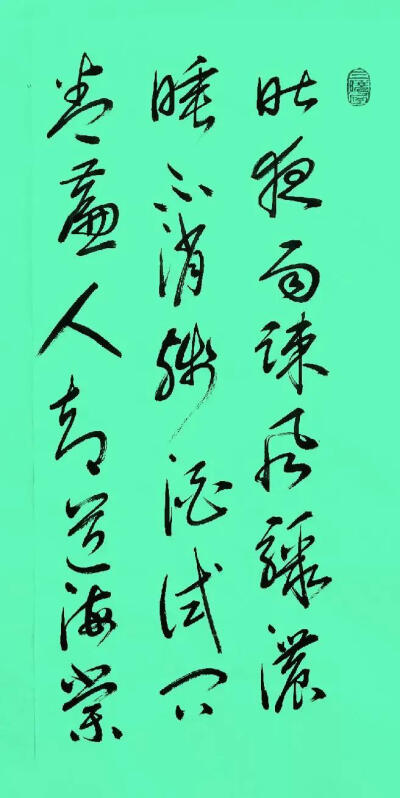 昨夜雨疎风骤浓
睡不消残酒试问
卷帘人却道海棠